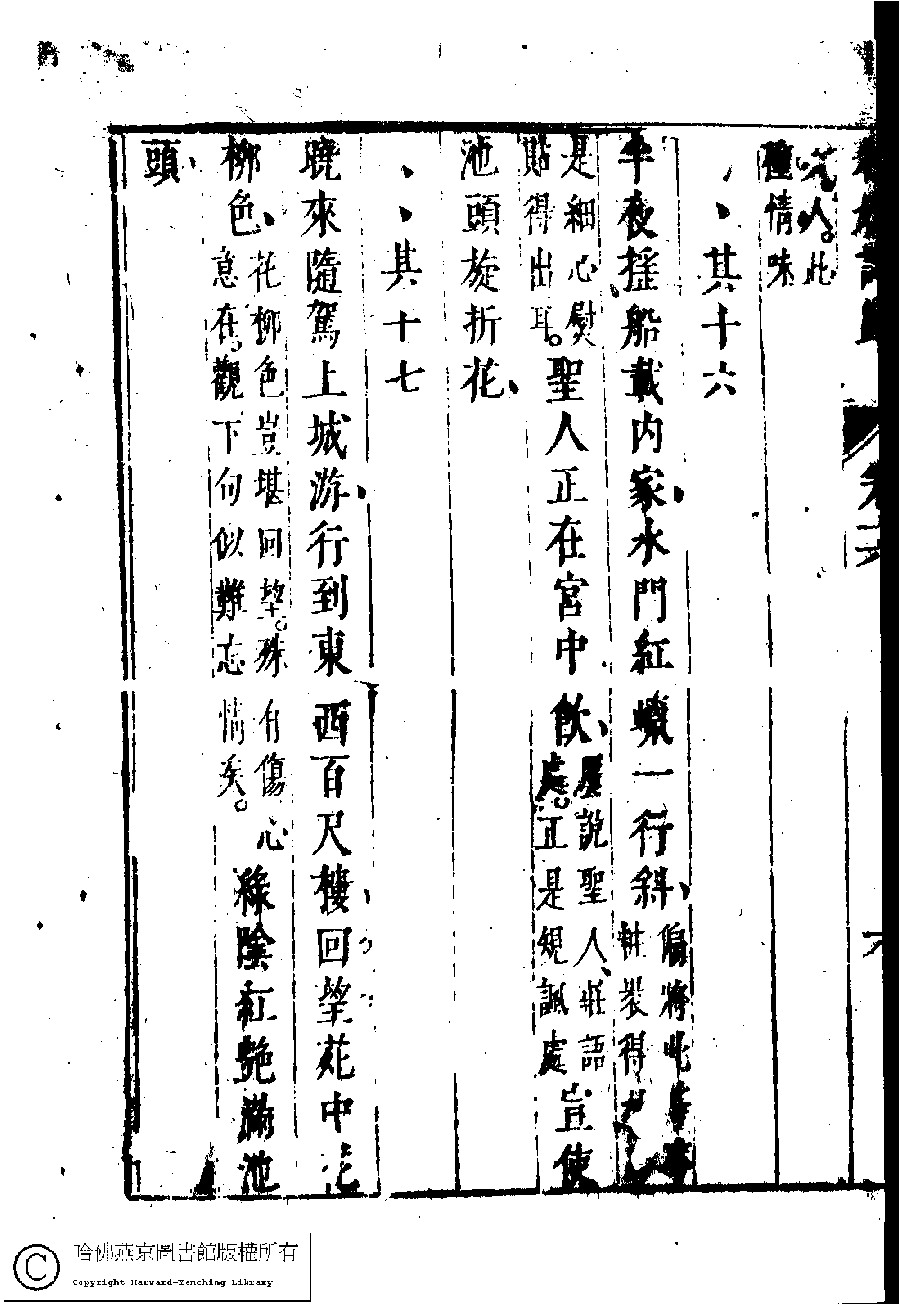 人。此
種情味
其十六
半夜搖船載內家、水門紅蠟一行斜、
偏將此等事
粧裝得
是細心熨
貼得出耳。
聖人正在宮中飲、
屢說聖人、莊語
處。正是規諷處
豈使
池頭旋折花、
其十七
晚來隨駕上城游、行到東西百尺樓、回望苑中花
柳色、
花柳色豈堪回望。殊有傷心
意在。觀下句似難忘情矣。
綠陰紅艷滿池
頭、
哈佛燕京圖書館版權所有
Copyright Harvard-Yenching Library